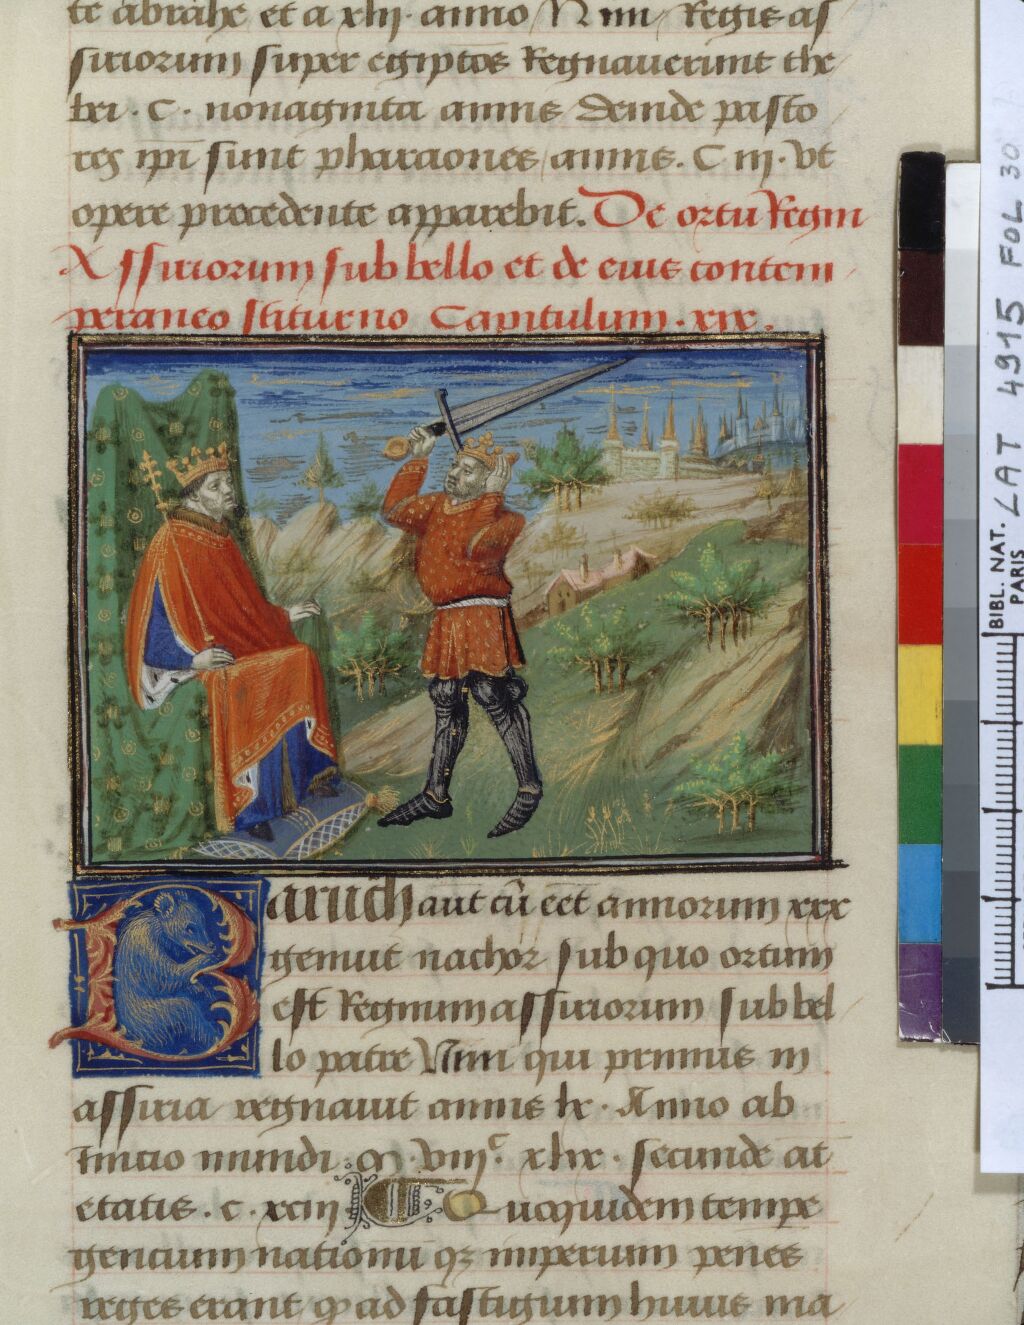 te abrahe et a xliii. anno Nini Regis as
siriorum super egiptos Regnauerunt the
bei. C. nonaginta annis Deinde pasto
res ipi sunt pharaones annis. C iij. vt
opere procedente apparebit. De ortu Regni
Assiriorum sub bello et de eius contem
peraneo Saturno Capitulum. xix.
Baruch aut cū eēt annorum xxx
genuit nachor sub quo ortum
est Regnum assiriorum sub bel
lo patre Nini qui primus in
assiria regnauit annis lx. Anno ab
Inicio mundi. M. viijc. xlix. secunde at
etatis. c. xciij Quoquidem tempe
gencium nationū qz imperium penes
reges erant q ad fastigium huius ma
BIBL. NAT. PARIS
LAT 4915 FOL 30